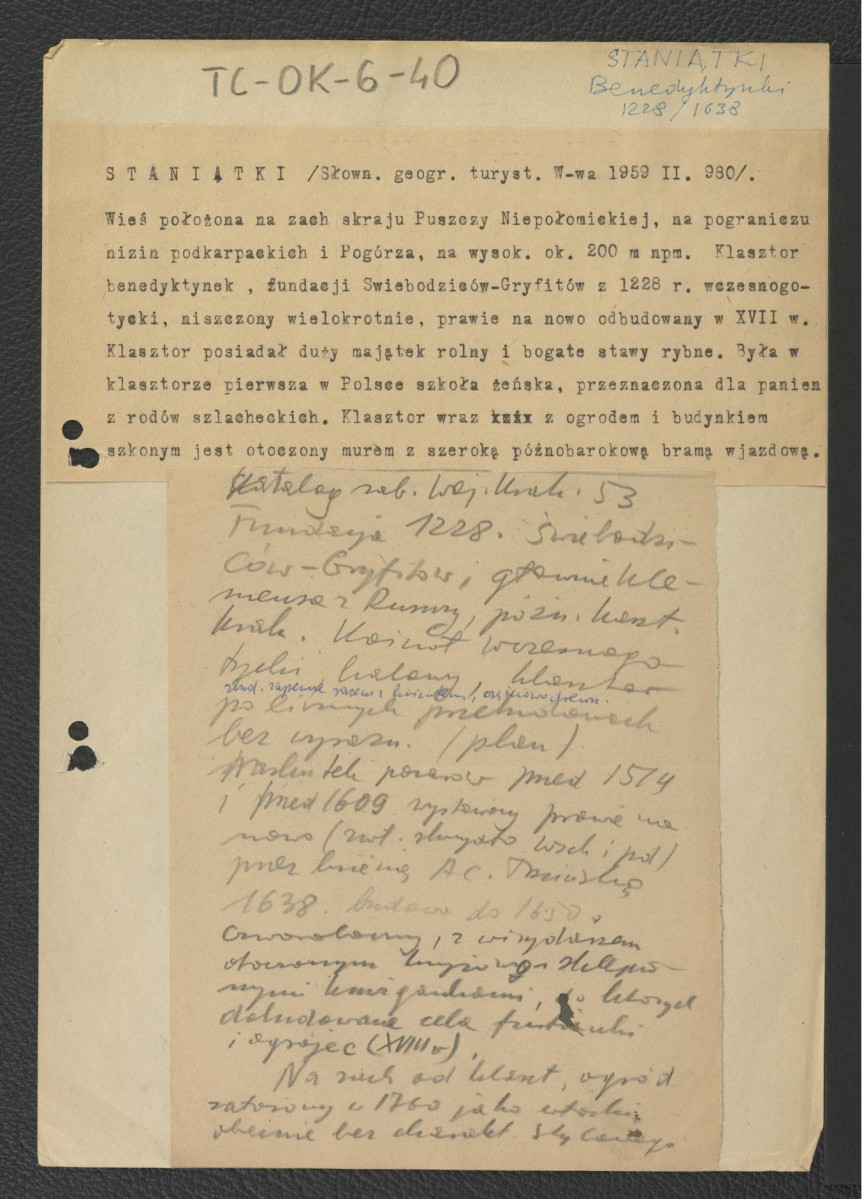 TC-OK-6-40
STANIĄTKI
Benedyktynki
1228/1638
STANIĄTKI /Słown. geogr. turyst. W-wa 1959 II. 980/.
Wieś położona na zach skraju Puszczy Niepołomickiej, na pograniczu
nizin podkarpackich i Pogórza, na wysok. ok. 200 m npm. Klasztor
benedyktynek , fundacji Swiebodziców-Gryfitów z 1228 r. wczesnogo-
tycki, niszczony wielokrotnie, prawie na nowo odbudowany w XVII w.
Klasztor posiadał duży majątek rolny i bogate stawy rybne. Była w
klasztorze pierwsza w Polsce szkoła żeńska, przeznaczona dla panien
z rodów szlacheckich. Klasztor wraz z ogrodem i budynkiem
szkonym jest otoczony murem z szeroką późnobarokową bramą wjazdową.
Katalog zab. Woj. Krak. 53
Fundacja 1228. Świebodzi-
ców-Gryfitów, głównie Kle-
mensa z Ruszczy, późn. kaszt.
krak. Kościół wczesnogo
tycki halowy, klasztor
po licznych przebudowach
bez wyrazu. (plan)
Wskutek pożarów przed 1514
i przed 1609 wystawiony prawie na
nowo (zwł. skrzydło wsch i pd)
przez ksienię A C. Trzcińską
1638. budowa do 1650.
czworoboczny, z wirydarzem
otoczonym krzyżowo sklepio-
nymi krużgankami, do których
dobudowane cela fundatorki
i ogrojec (XVIII w),
Na zach od klaszt, ogród
założony w 1760 jako włoski,
obecnie bez charakt stylowego